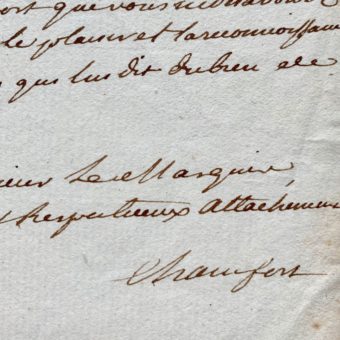 ort que vous
le plaisir et la reconnoissan
que lui dit du bien de
sieur Le Marquis,
Respectueux attachement
Chamfort